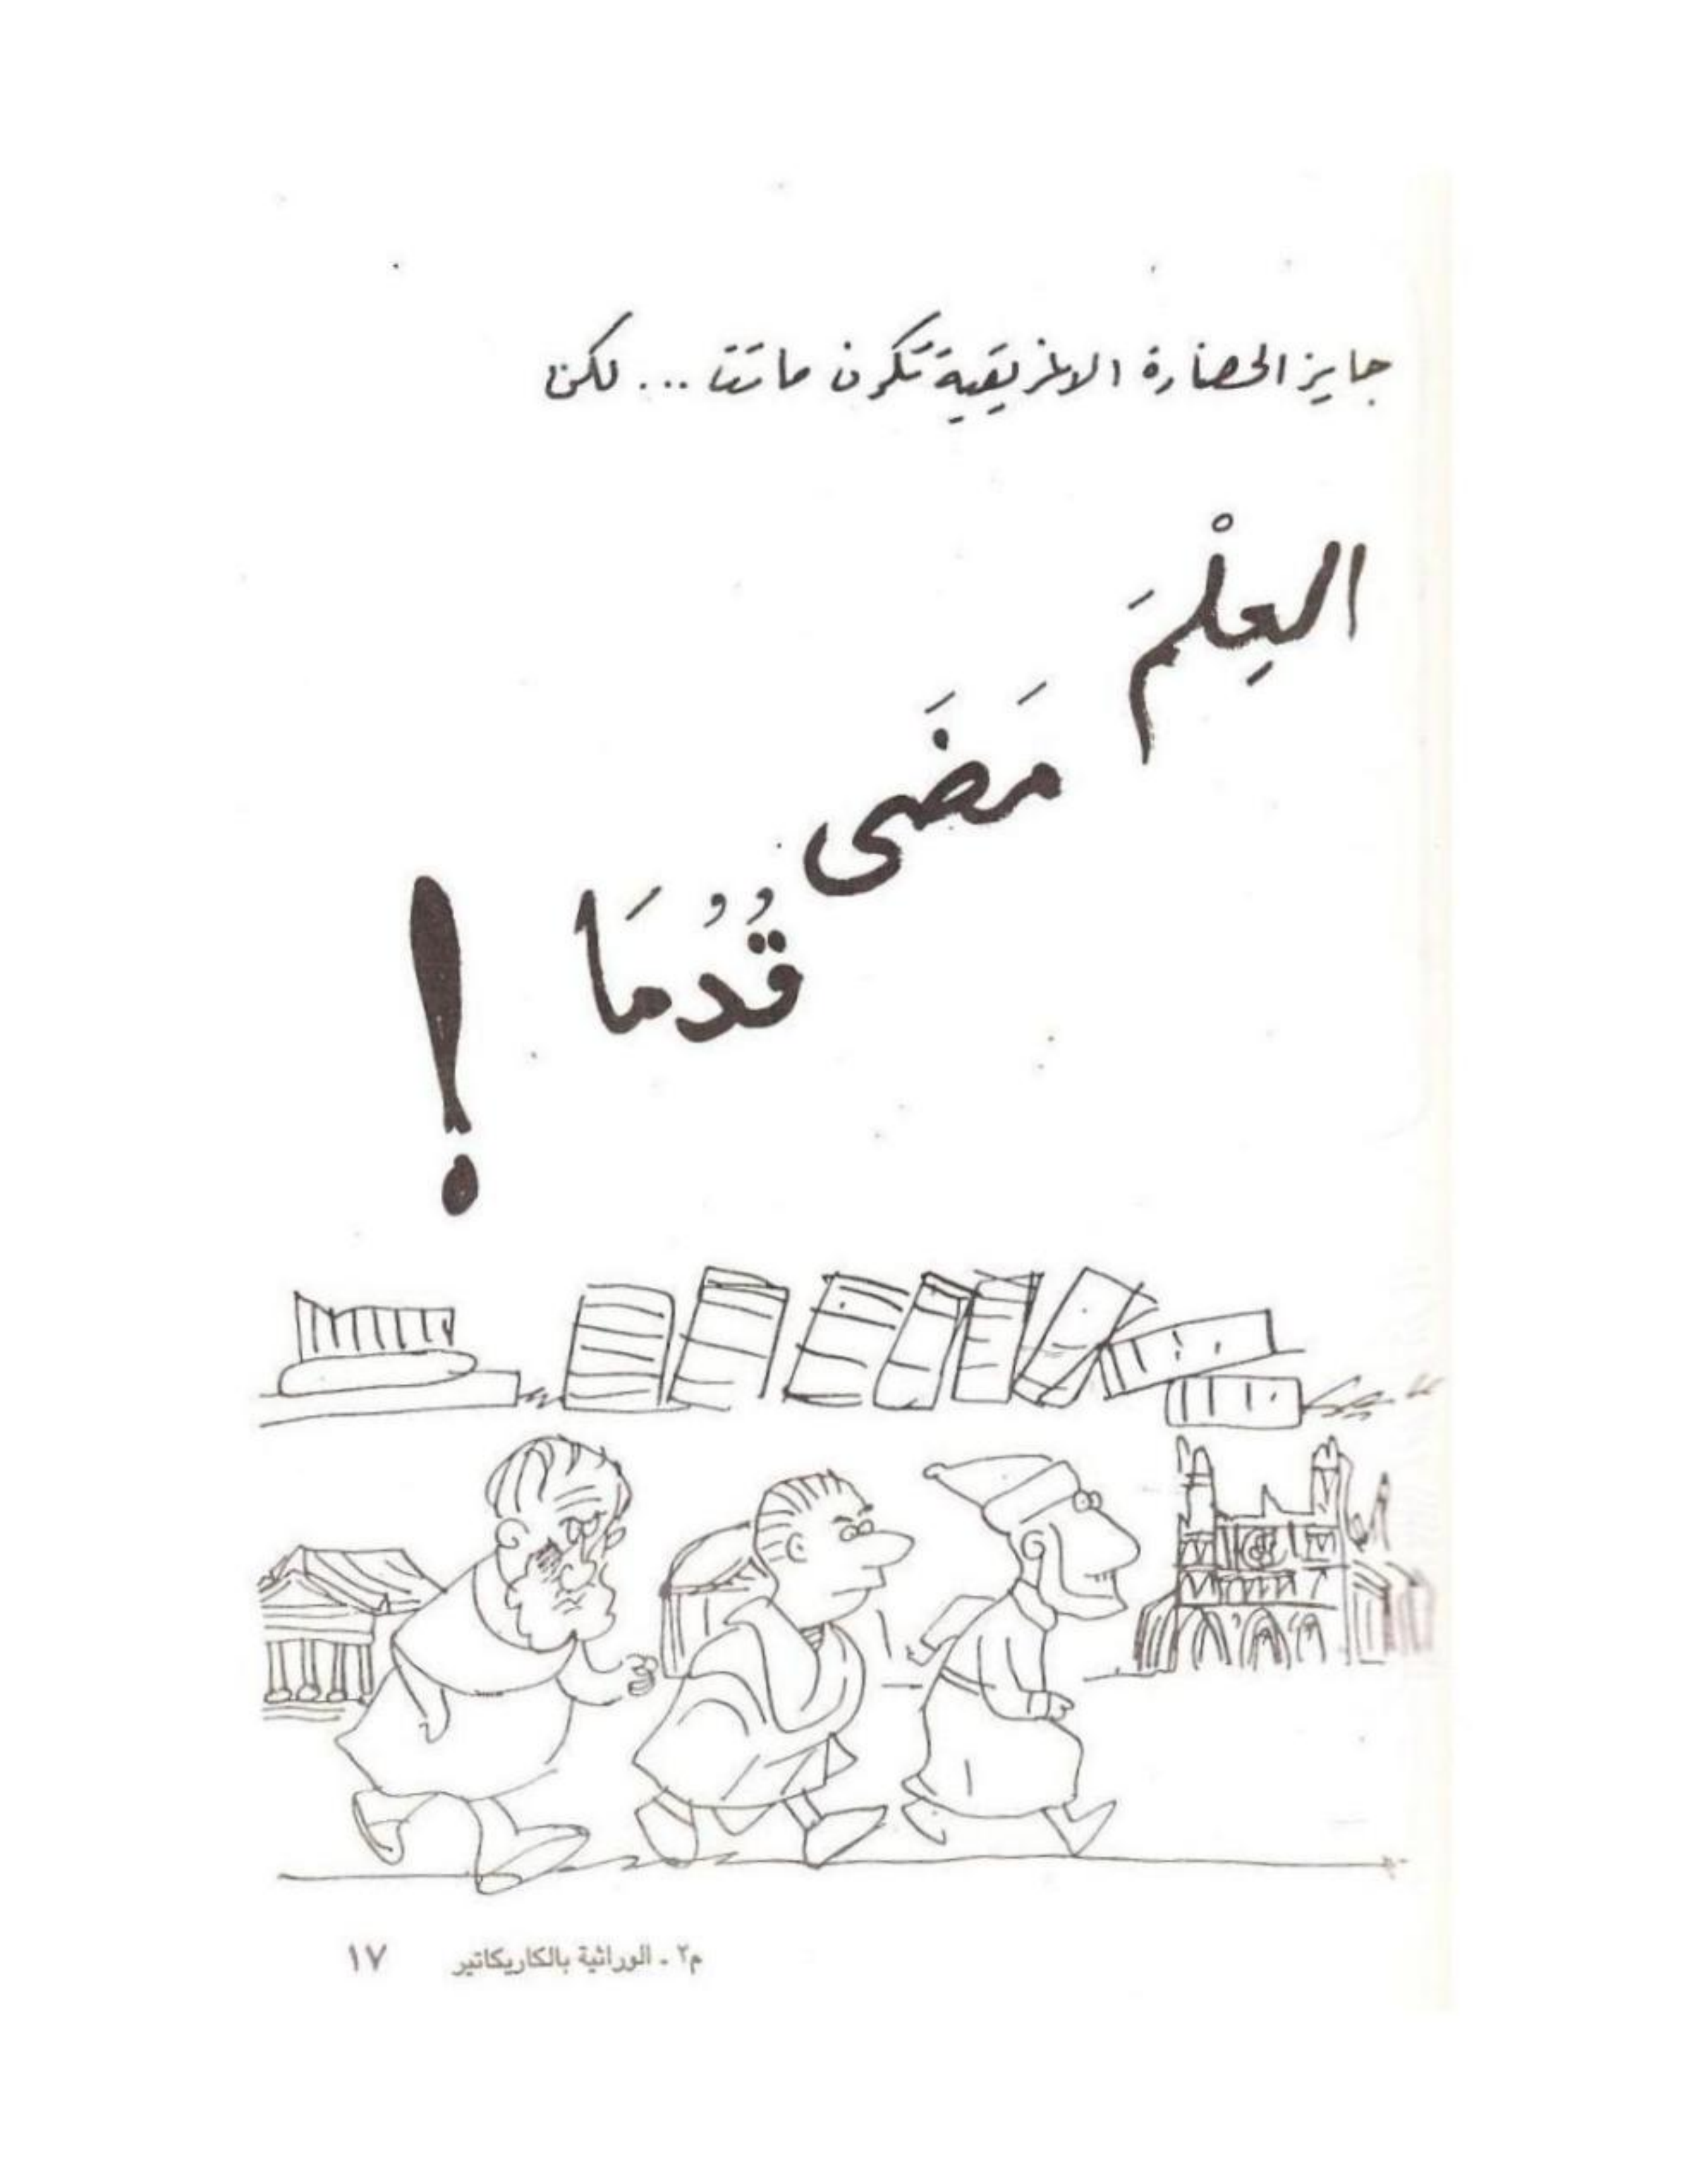 جايز الحضارة الاغريقية تكون ماتت ... لكن
العِلْمَ
مَضَى
قُدُمَا !
م٢ ـ الوراثية بالكاريكاتير ١٧